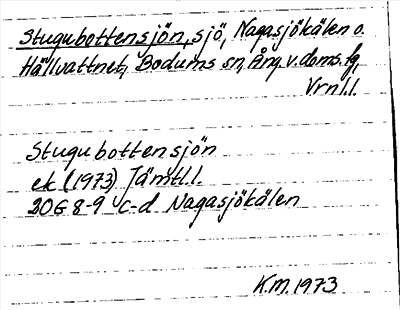 Stugubottensjön, sjö, Nagasjökälen o.
Hällvattnet, Bodums sn, Ång. v. doms. fg,
Vrnl.l.
Stugubottensjön
ek (1973) Jämtl.l.
20G 8-9 c-d Nagasjökälen
K.M. 1973